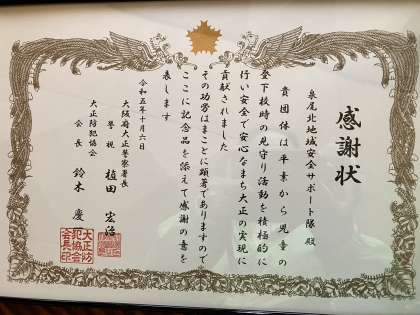 感謝状
泉尾北地域安全サポート隊 殿
貴団体は平素から児童の
登下校時の見守り活動を積極的に
行い安全で安心なまち大正の実現に
貢献されました
その功労はまことに顕著でありますので
ここに記念品を添えて感謝の意を
表します
令和五年十月六日
大阪府大正警察署長
警視 植田 宏治
大正防犯協会
会長 鈴木 慶
大正防
犯協会
会長印